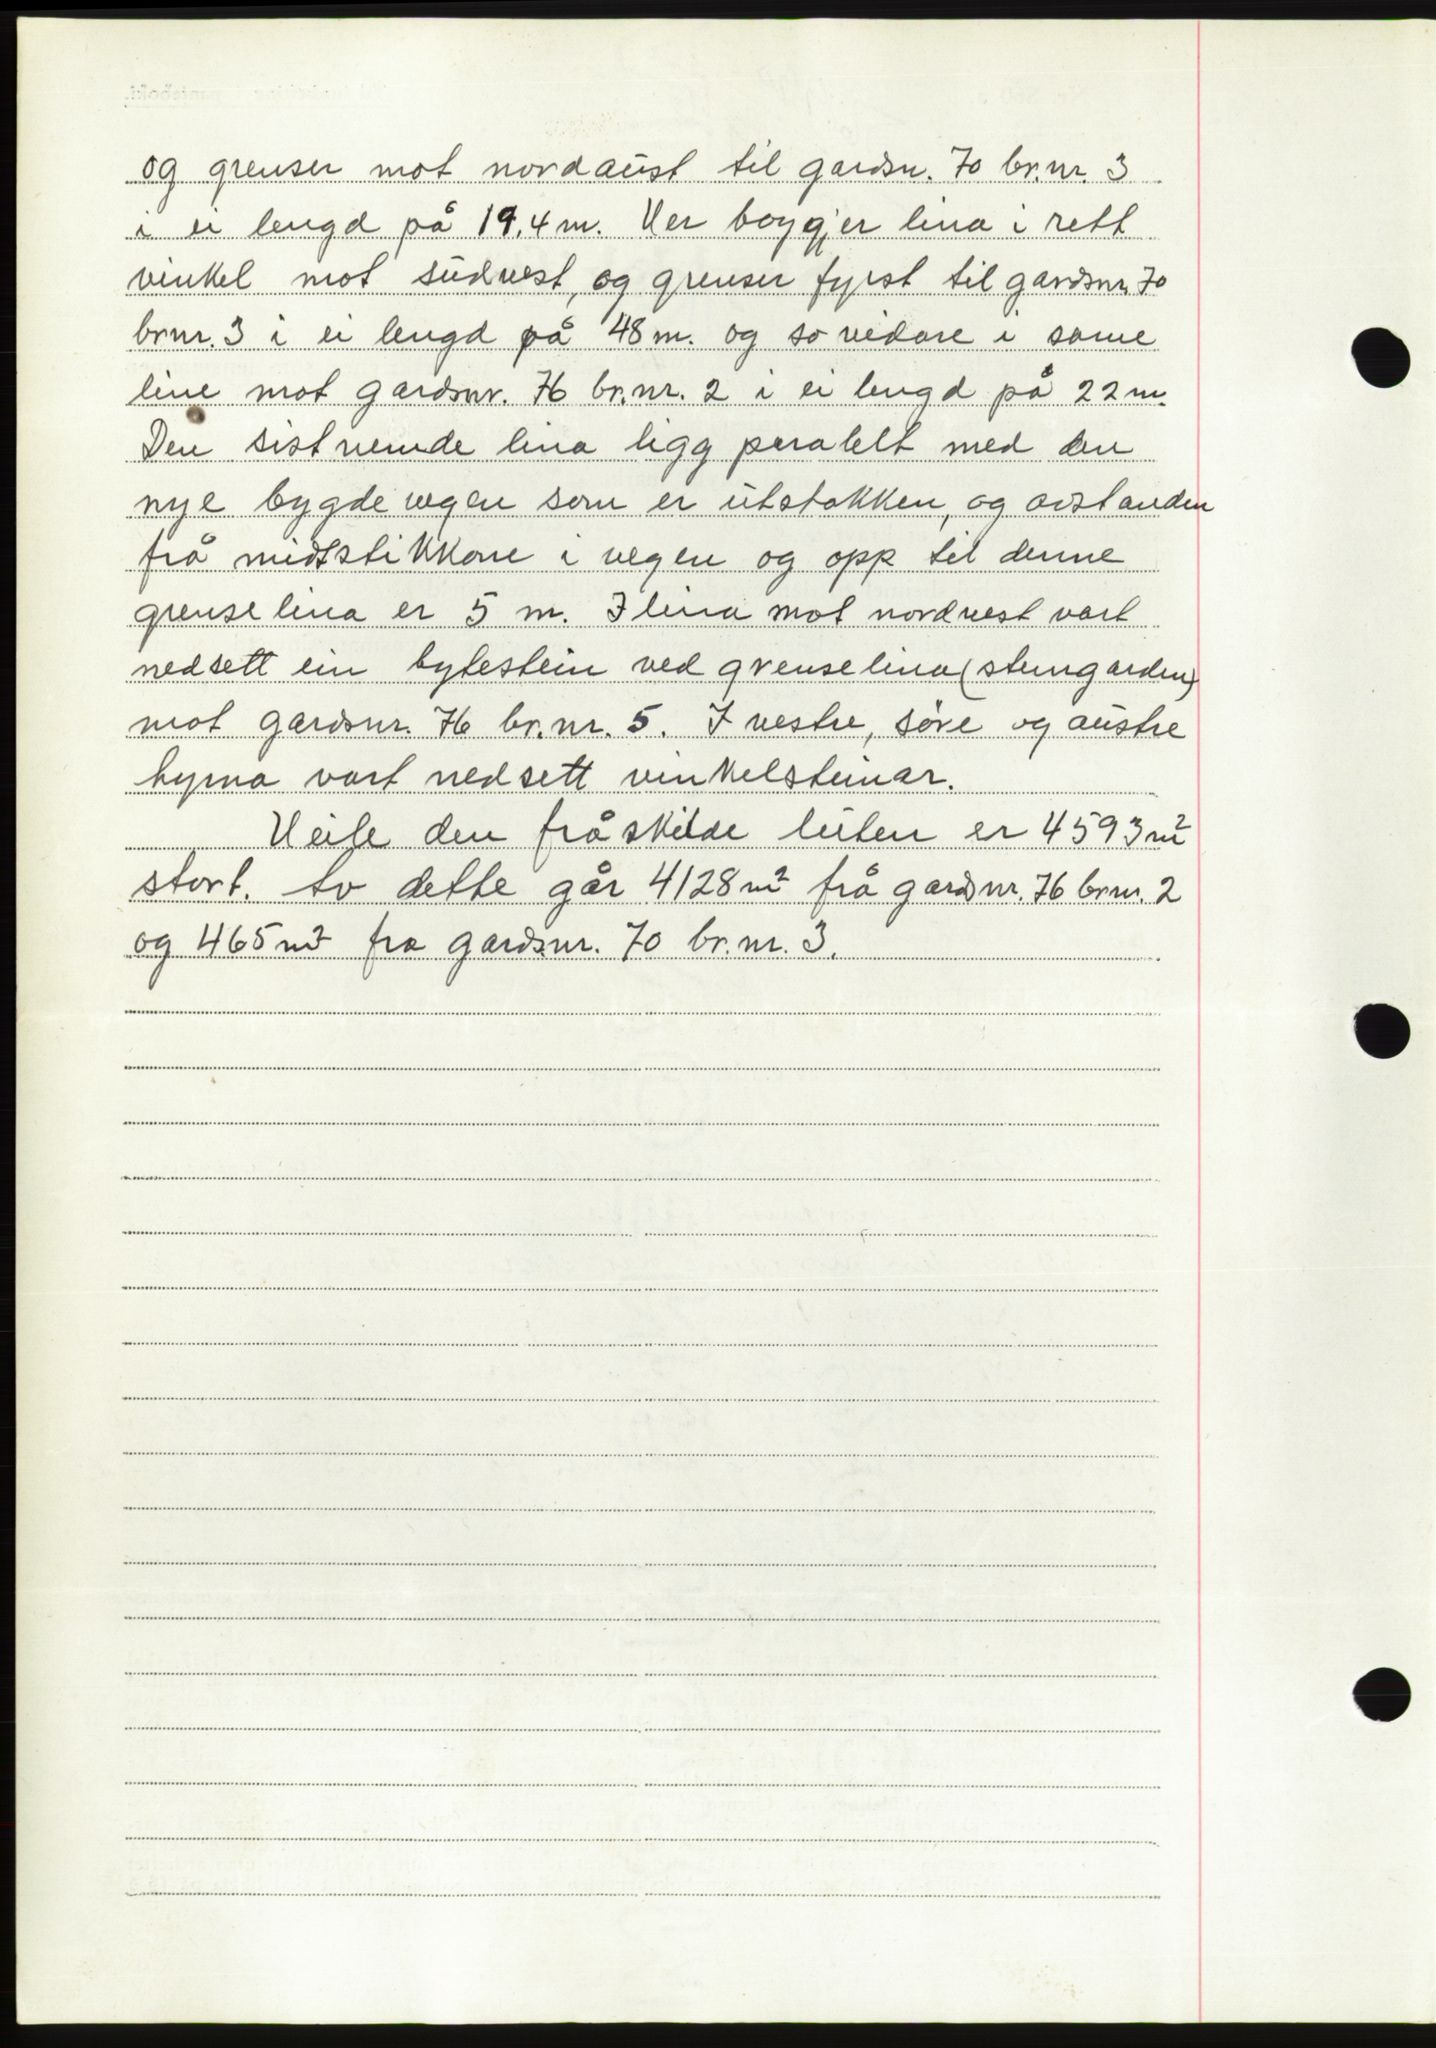 og grenser mot nordaust til gardsn. 70 br.nr. 3
i ei lengd på 19,4 m. Her bøygjer lina i rett
vinkel mot sudvest, og grenser fyrst til gardsnr. 70
br.nr. 3 i ei lengd på 48 m. og so vidare i same
line mot gardsnr. 76 br.nr. 2 i ei lengd på 22 m.
Den sistnemde lina ligg paralelt med den
nye bygdevegen som er utstokken, og avstanden
frå midtstikkone i vegen og opp til denne
grenselina er 5 m. I lina mot nordvest vart
nedsett ein bytestein ved grenselina (steingarden)
mot gardsnr. 76 br.nr. 5. I vestre, søre og austre
hyrna vart nedsett vinkelsteinar.
Heile den fråskilde luten er 4593 m²
stort. Av dette går 4128 m² frå gardsnr. 76 br.nr. 2
og 465 m² fra gardsnr. 70 br.nr. 3.